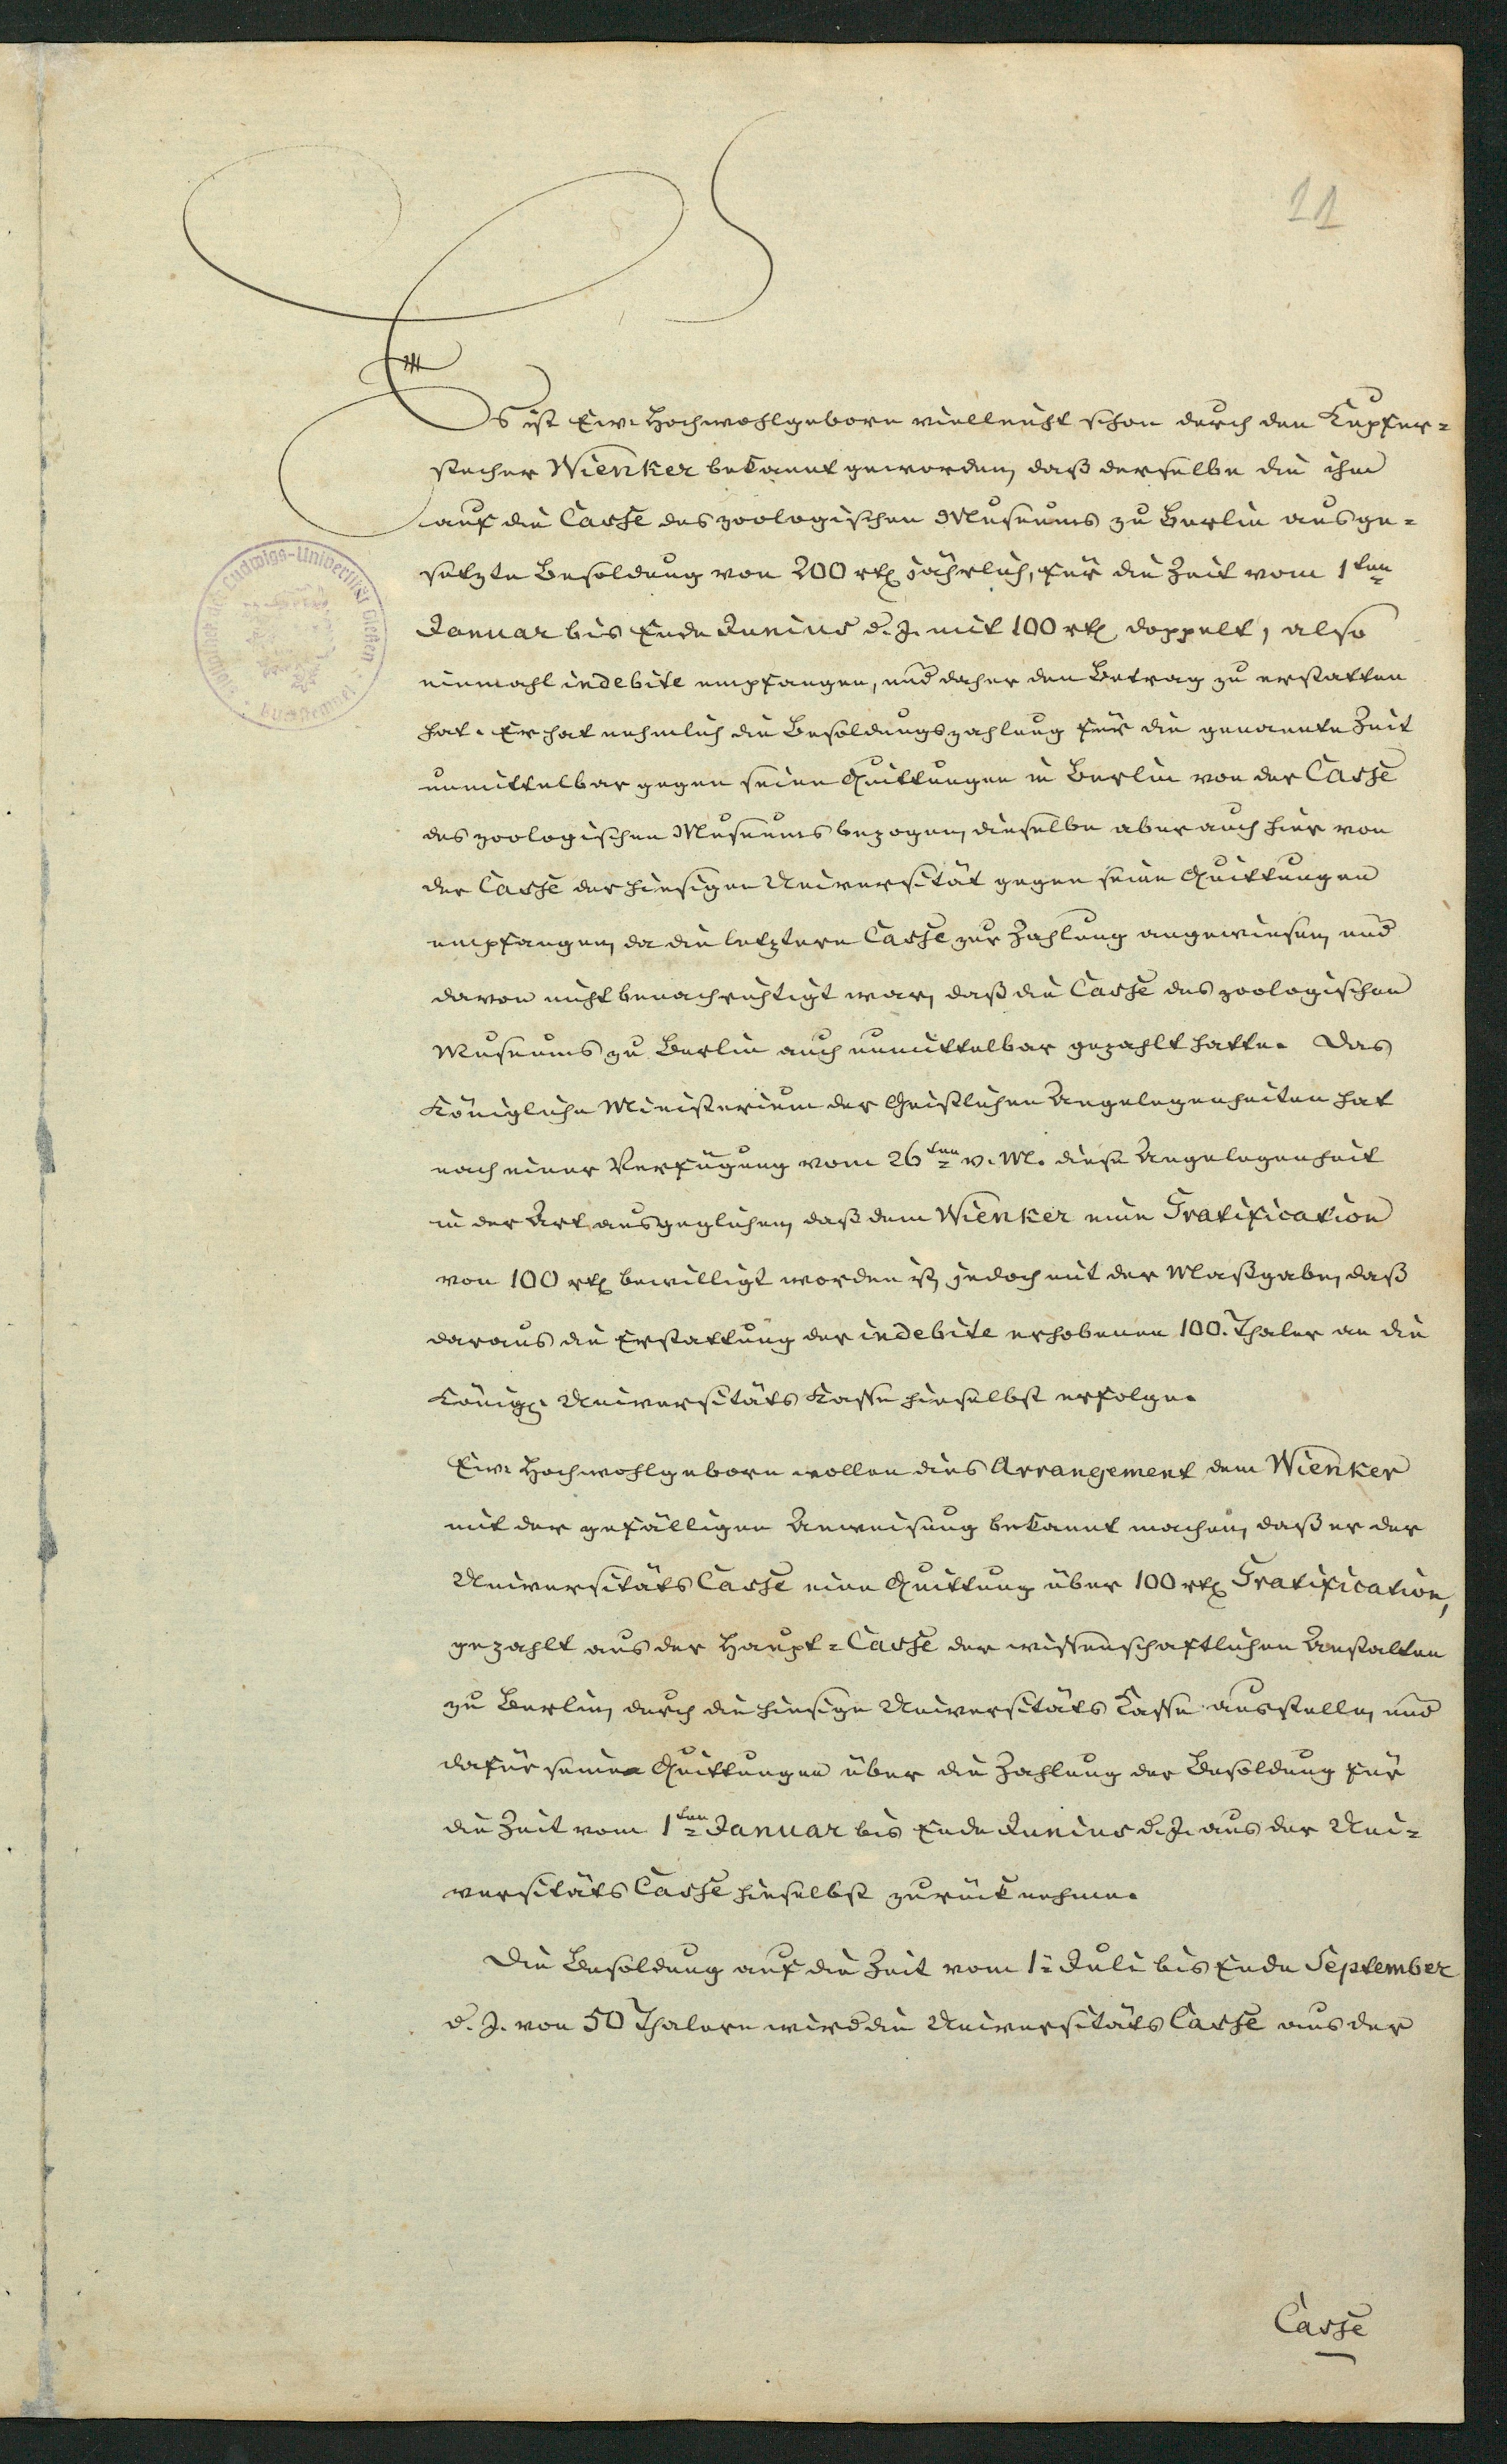 11
Es ist Ew. Hochwohlgeborn vielleicht schon durch den Kupfer=
stecher Wienker bekannt geworden, daß derselbe die ihm
auf die Casse des zoologischen Museums zu Berlin ausge=
setzte Besoldung von 200 rtl jährlich, für die Zeit vom 1ten
Januar bis Ende Junius d. J. mit 100 rtl doppelt, also
einmahl indebite empfangen, und daher den Betrag zu erstatten
hat. Er hat nehmlich die Besoldungszahlung für die genannte Zeit
unmittelbar gegen seine Quittungen in Berlin von der Casse
des zoologischen Museums bezogen, dieselbe aber auch hier von
der Casse der hiesigen Universität gegen seine Quittungen
empfangen, da die letztere Casse zur Zahlung angewiesen, und
davon nicht benachrichtigt war, daß die Casse des zoologischen
Museums zu Berlin auch unmittelbar gezahlt hatte. Das
Königliche Ministerium der Geistlichen Angelegenheiten hat
nach einer Verfügung vom 26ten v. M. diese Angelegenheit
in der Art ausgeglichen, daß dem Wienker eine Gratification
von 100 rtl bewilligt worden ist, jedoch mit der Maßgabe, daß
daraus die Erstattung der indebite erhobenen 100. Thaler an die
Königl. Universitäts Kasse hieselbst erfolge.
Ew. Hochwohlgeborn wollen dies Arrangement dem Wienker
mit der gefälligen Anweisung bekannt machen, daß er der
Universitäts Casse eine Quittung über 100 rtl Gratification,
gezahlt aus der Haupt=Casse der wissenschaftlichen Anstalten
zu Berlin, durch die hiesige Universitäts Kasse ausstelle, und
dafür seine Quittungen über die Zahlung der Besoldung für
die Zeit vom 1ten Januar bis Ende Junius d. J. aus der Uni=
versitäts Casse hieselbst zurück nehme.
Die Besoldung auf die Zeit vom 1= Juli bis Ende September
d. J. von 50 Thalern wird die Universitäts Casse aus der
Casse
Ludwigs-Universität Gießen